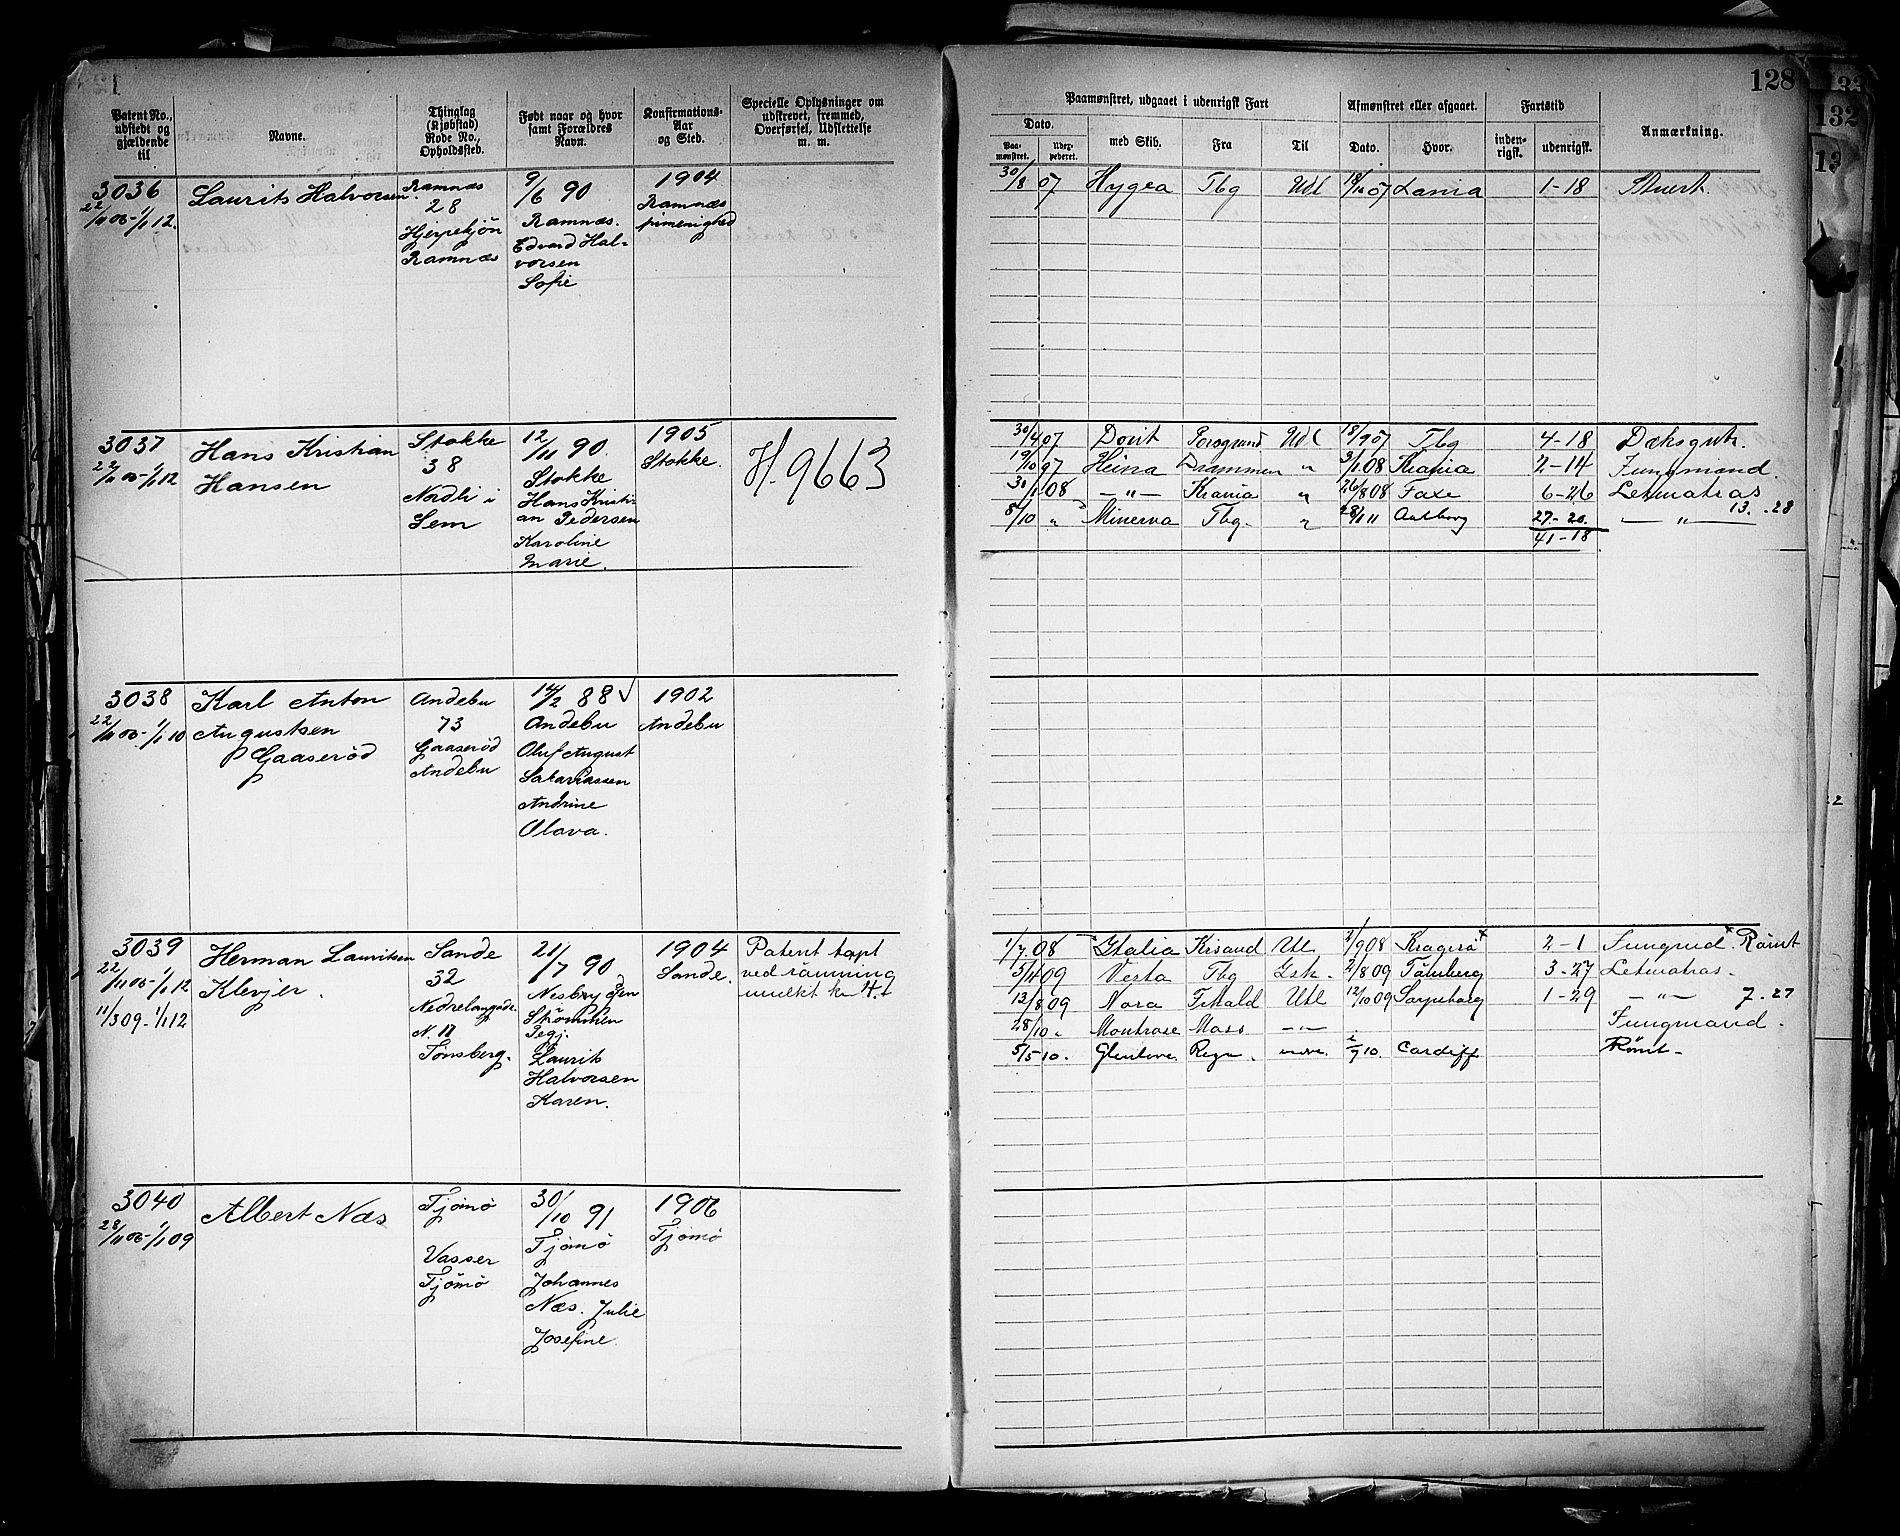 128
132
Patent No., udstedt og gjældende til
Navne.
Thinglag (Kjøbstad) Rode No., Opholdssted.
Født naar og hvor samt Forældres Navn.
Konfirmations-Aar og Sted.
Specielle Oplysninger om udskrevet, fremmed, Overførsel, Udslettelse m. m.
Paamønstret, udgaaet i udenrigsk Fart
Dato.
Paamønstret.
med Skib.
Fra
Til
Afmønstret eller afgaaet.
Dato.
Hvor.
Fartstid
indenrigsk.
udenrigsk.
Anmærkning.
3036
22/11 06-1/1 12.
Laurits Halvorsen.
Ramnæs
28
Ramnæs
9/6 90
Ramnæs.
Edvard Hal-
vorsen
Sofie
1904
Ramnæs
primenighed
30/8 07 Hygea Tbg Udl 07 1-18
3037
22/11 06-1/1 12
Hans Kristian
Hansen
Stokke
38
Nadli i
Sem
12/11 90.
Stokke
Hans Kristi-
an Pedersen
Karoline
Marie.
1905
Stokke.
H. 9663
30/4 07 Dovit Porsgrund Udl 18/9 07 Tbg 4-18 Dæksgut.
19/10 07 Heina Drammen " 3/1 08 Krania 2-14 Jungmand.
30/1 08 —"— Krania " 26/8 08 Faxe 6-26 Letmatros
8/10 " Minerva Tbg. " 28/1 11 Aalborg 27-20. —"— 13.-28
41-18.
3038
22/11 06-1/1 10
Karl Anton
Augustsen
Gaaserød
Andebu
73
Gaaserød
Andebu
14/2 88 ✓
Andebu
Oluf August
Sakariassen
Andrine
Olava.
1902
Andebu
3039
22/11 06-1/1 12
11/3 09.-1/1 12
Herman Lauritsen
Klevjer.
Sande
32
Nedrelanggade.
N. 17
Tønsberg.
21/7 90
Laurits
Halvorsen
Karen.
1904
Sande.
Patent tapt
ved rømming
mulkt kr 4.-
1/7 08 Italia Krisand Utl 2/9 08 Kragerø 2-1 Jungmd. Rømt
5/4 09 Vesta Tbg 2/8 09 Tönsberg 3-27 Letmatros.
13/8 09 Nora Fshald Utl 12/10 09 Sarpsborg 1-29 —"— 7.27
28/10 " Montrose Moss —"— Jungmand.
5/5 10. 10. Cardiff Rømt-
3040
28/11 06-1/1 09
Albert Næs
Tjømø
Vasser
Tjømø
30/10 91
Tjømø
Johannes
Næs. Julie
Josefine.
1906
Tjømø